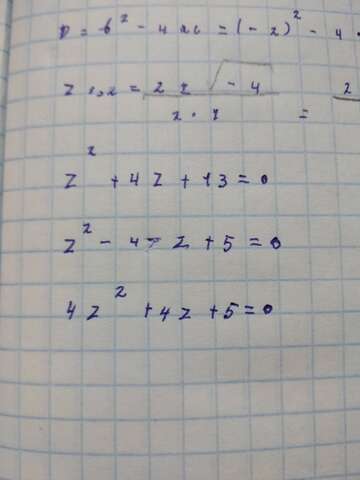 D = b² - 4ac = (-2)² - 4 ·
z₁,₂ = 2 ± √-4 / 2 · 1 = 2
z² + 4z + 13 = 0
z² - 4z + 5 = 0
4z² + 4z + 5 = 0